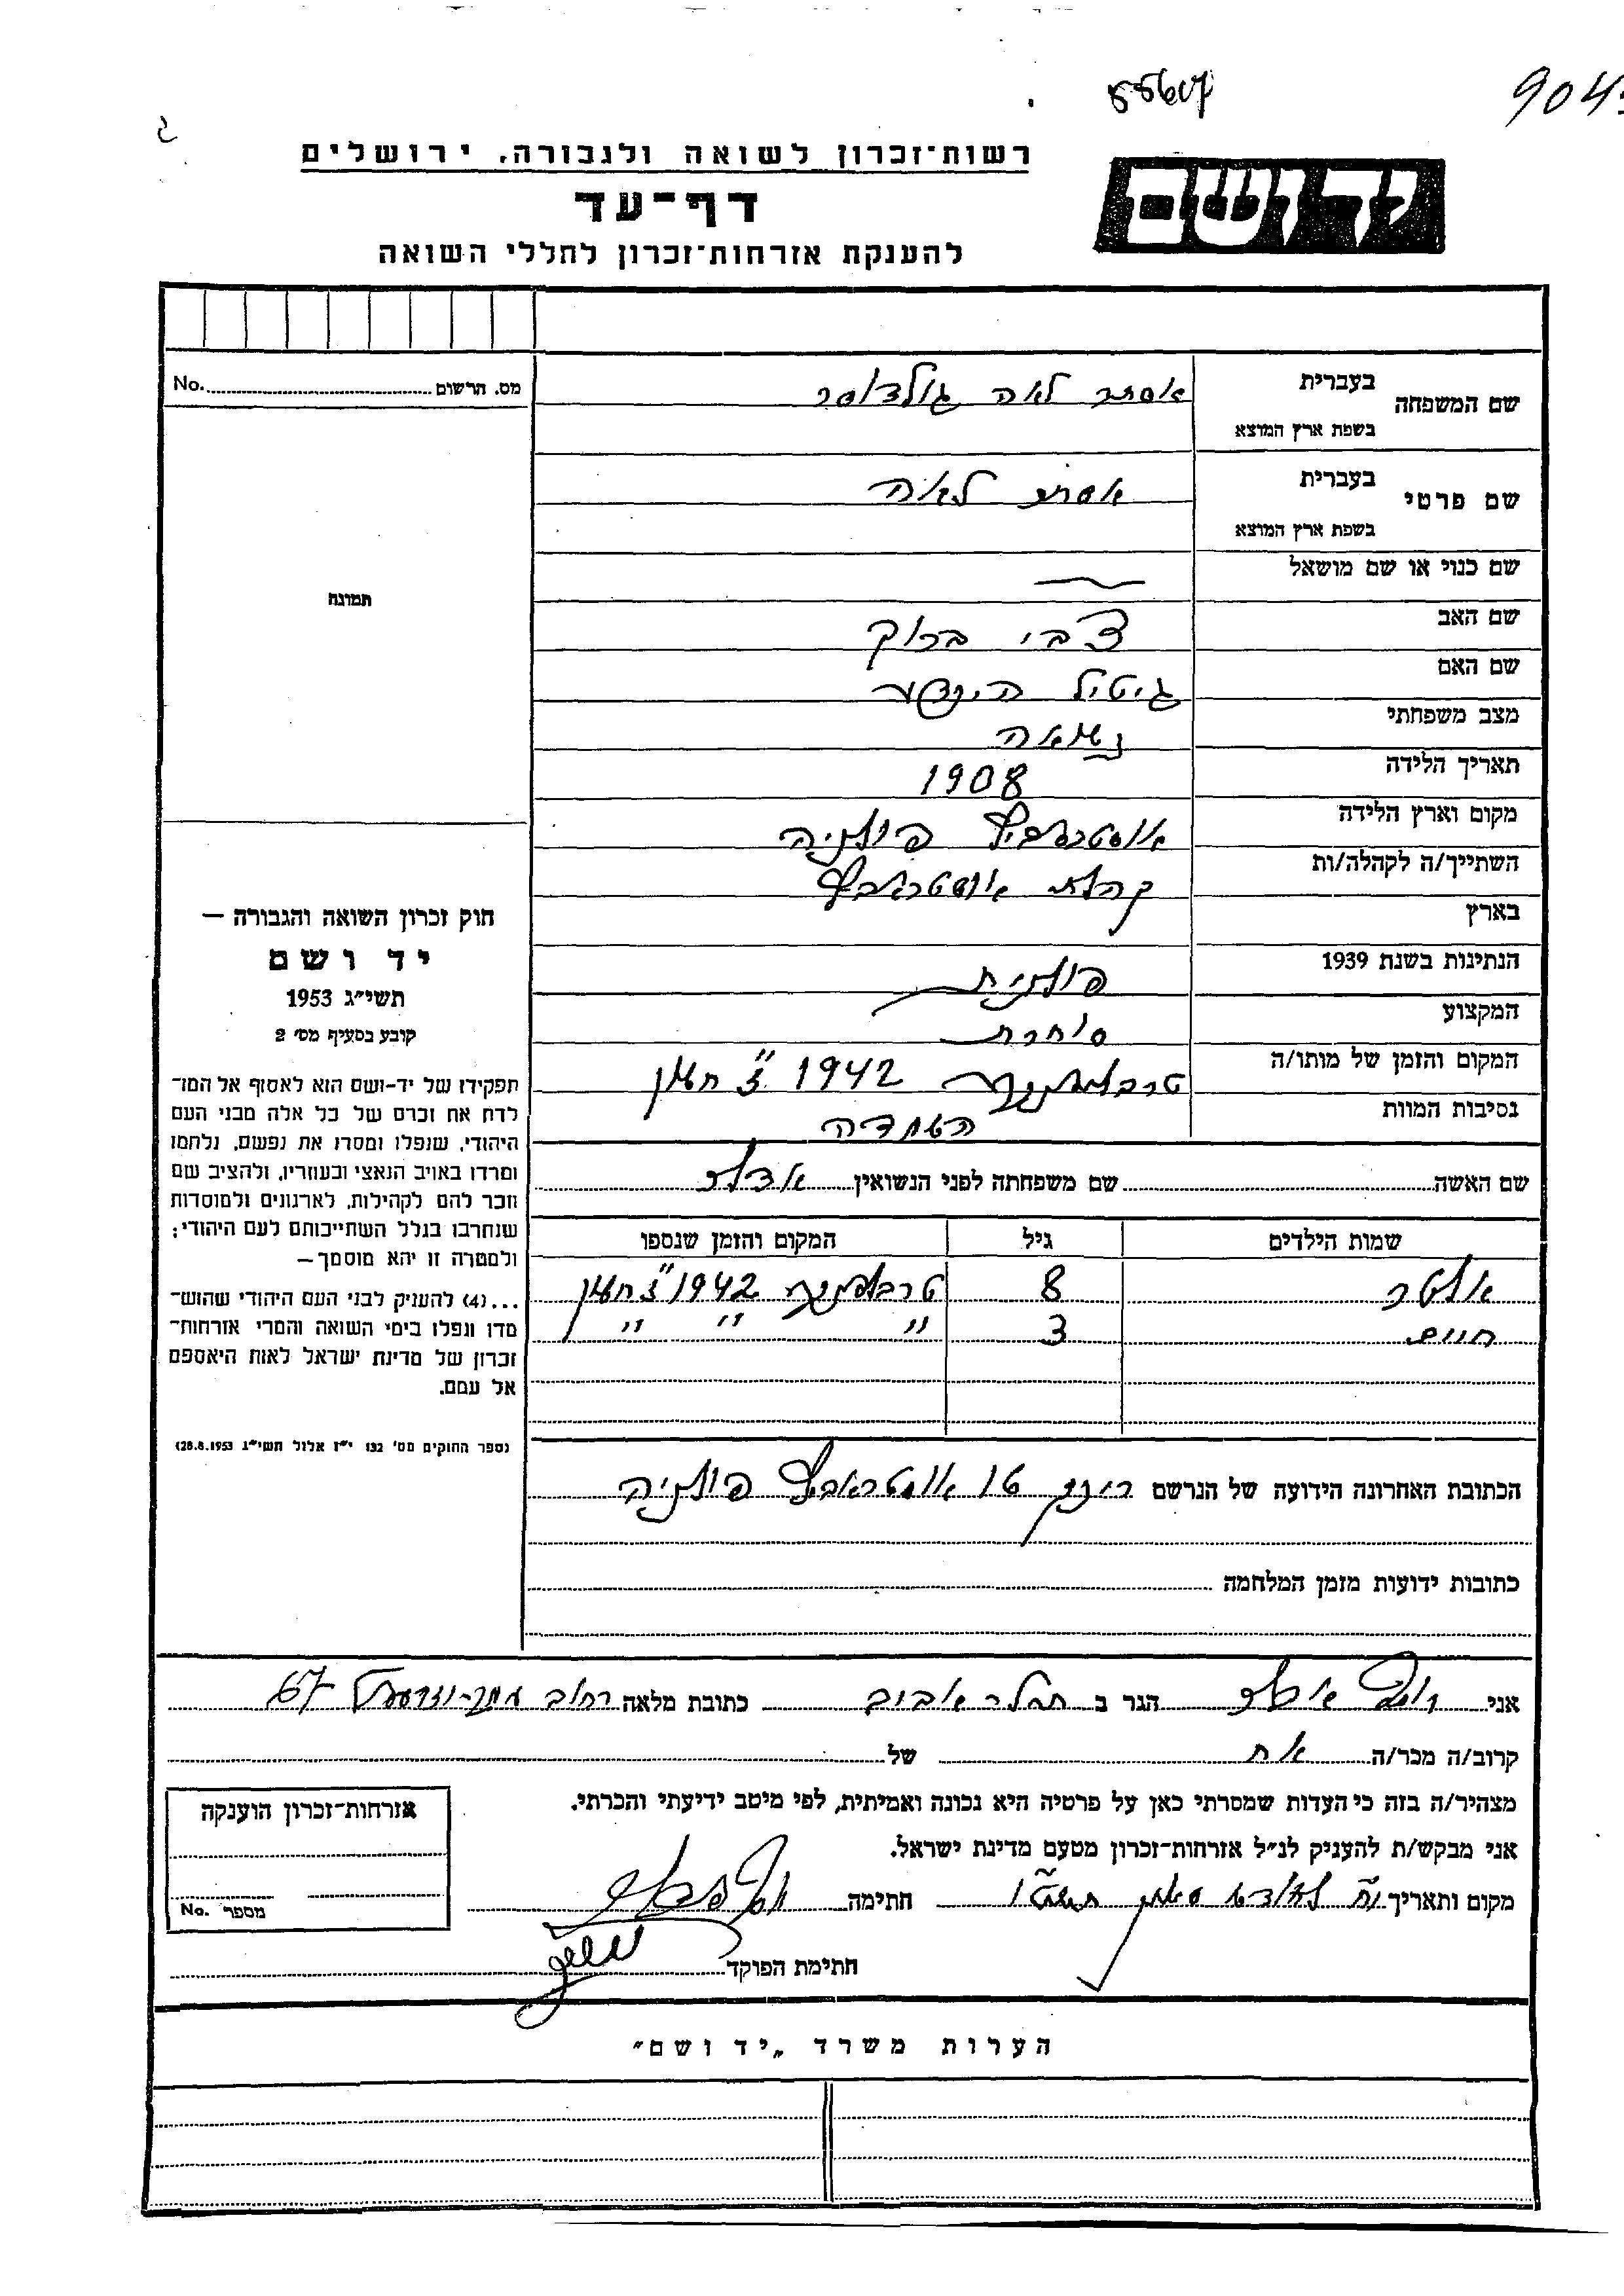 55607
904
רשות־זכרון לשואה ולגבורה, ירושלים
יד ושם
דף־עד
להענקת אזרחות־זכרון לחללי השואה
מס. הרשום No.
שם המשפחה בעברית אסתר לאה גולדוסר
בשפת ארץ המוצא
שם פרטי בעברית אסתר לאה
בשפת ארץ המוצא
תמונה
שם כנוי או שם מושאל —
שם האב צבי ברוך
שם האם גיטיל הינדע
מצב משפחתי נשואה
תאריך הלידה 1908
מקום וארץ הלידה פולניה
השתייך/ה לקהלה/ות קהלת
בארץ
הנתינות בשנת 1939 פולנית
המקצוע סוחרת
המקום והזמן של מותו/ה טרבלינקה 1942 חשון
נסיבות המוות השמדה
שם האשה שם משפחתה לפני הנשואין
שמות הילדים גיל המקום והזמן שנספו
אלטר 8 טרבלינקה 1942 חשון
חיים 3 " " "
הכתובת האחרונה הידועה של הנרשם רינק 16 פולניה
כתובות ידועות מזמן המלחמה
חוק זכרון השואה והגבורה —
יד ושם
תשי״ג 1953
קובע בסעיף מס׳ 2
תפקידו של יד-ושם הוא לאסוף אל המו־
לדת את זכרם של כל אלה מבני העם
היהודי, שנפלו ומסרו את נפשם, נלחמו
ומרדו באויב הנאצי ובעוזריו, ולהציב שם
וזכר להם לקהילות, לארגונים ולמוסדות
שנחרבו בגלל השתייכותם לעם היהודי;
ולמטרה זו יהא מוסמך—
...(4) להעניק לבני העם היהודי שהוש־
מדו ונפלו בימי השואה והמרי אזרחות־
זכרון של מדינת ישראל לאות היאספם
אל עמם.
(ספר החוקים מס׳ 132 י״ז אלול תשי״ג 28.8.1953)
אני הגר ב תל אביב כתובת מלאה רחוב 67
קרוב/ה מכר/ה אח של
מצהיר/ה בזה כי העדות שמסרתי כאן על פרטיה היא נכונה ואמיתית, לפי מיטב ידיעתי והכרתי.
אני מבקש/ת להעניק לנ״ל אזרחות־זכרון מטעם מדינת ישראל.
מקום ותאריך חתימה
חתימת הפוקד
אזרחות־זכרון הוענקה
מספר No.
הערות משרד „יד ושם״